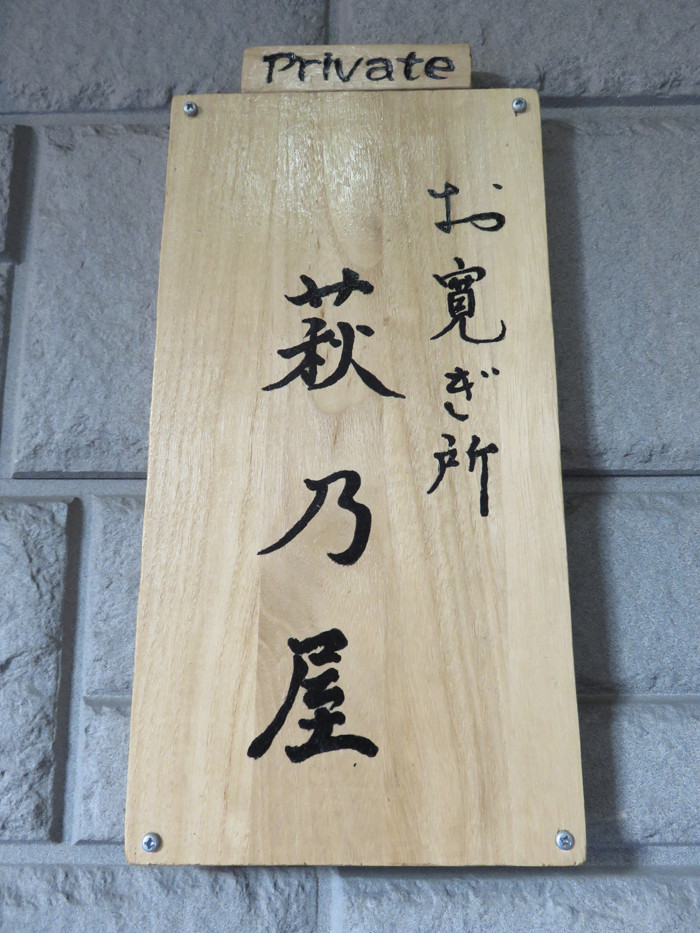 Private
お寛ぎ所
萩乃屋